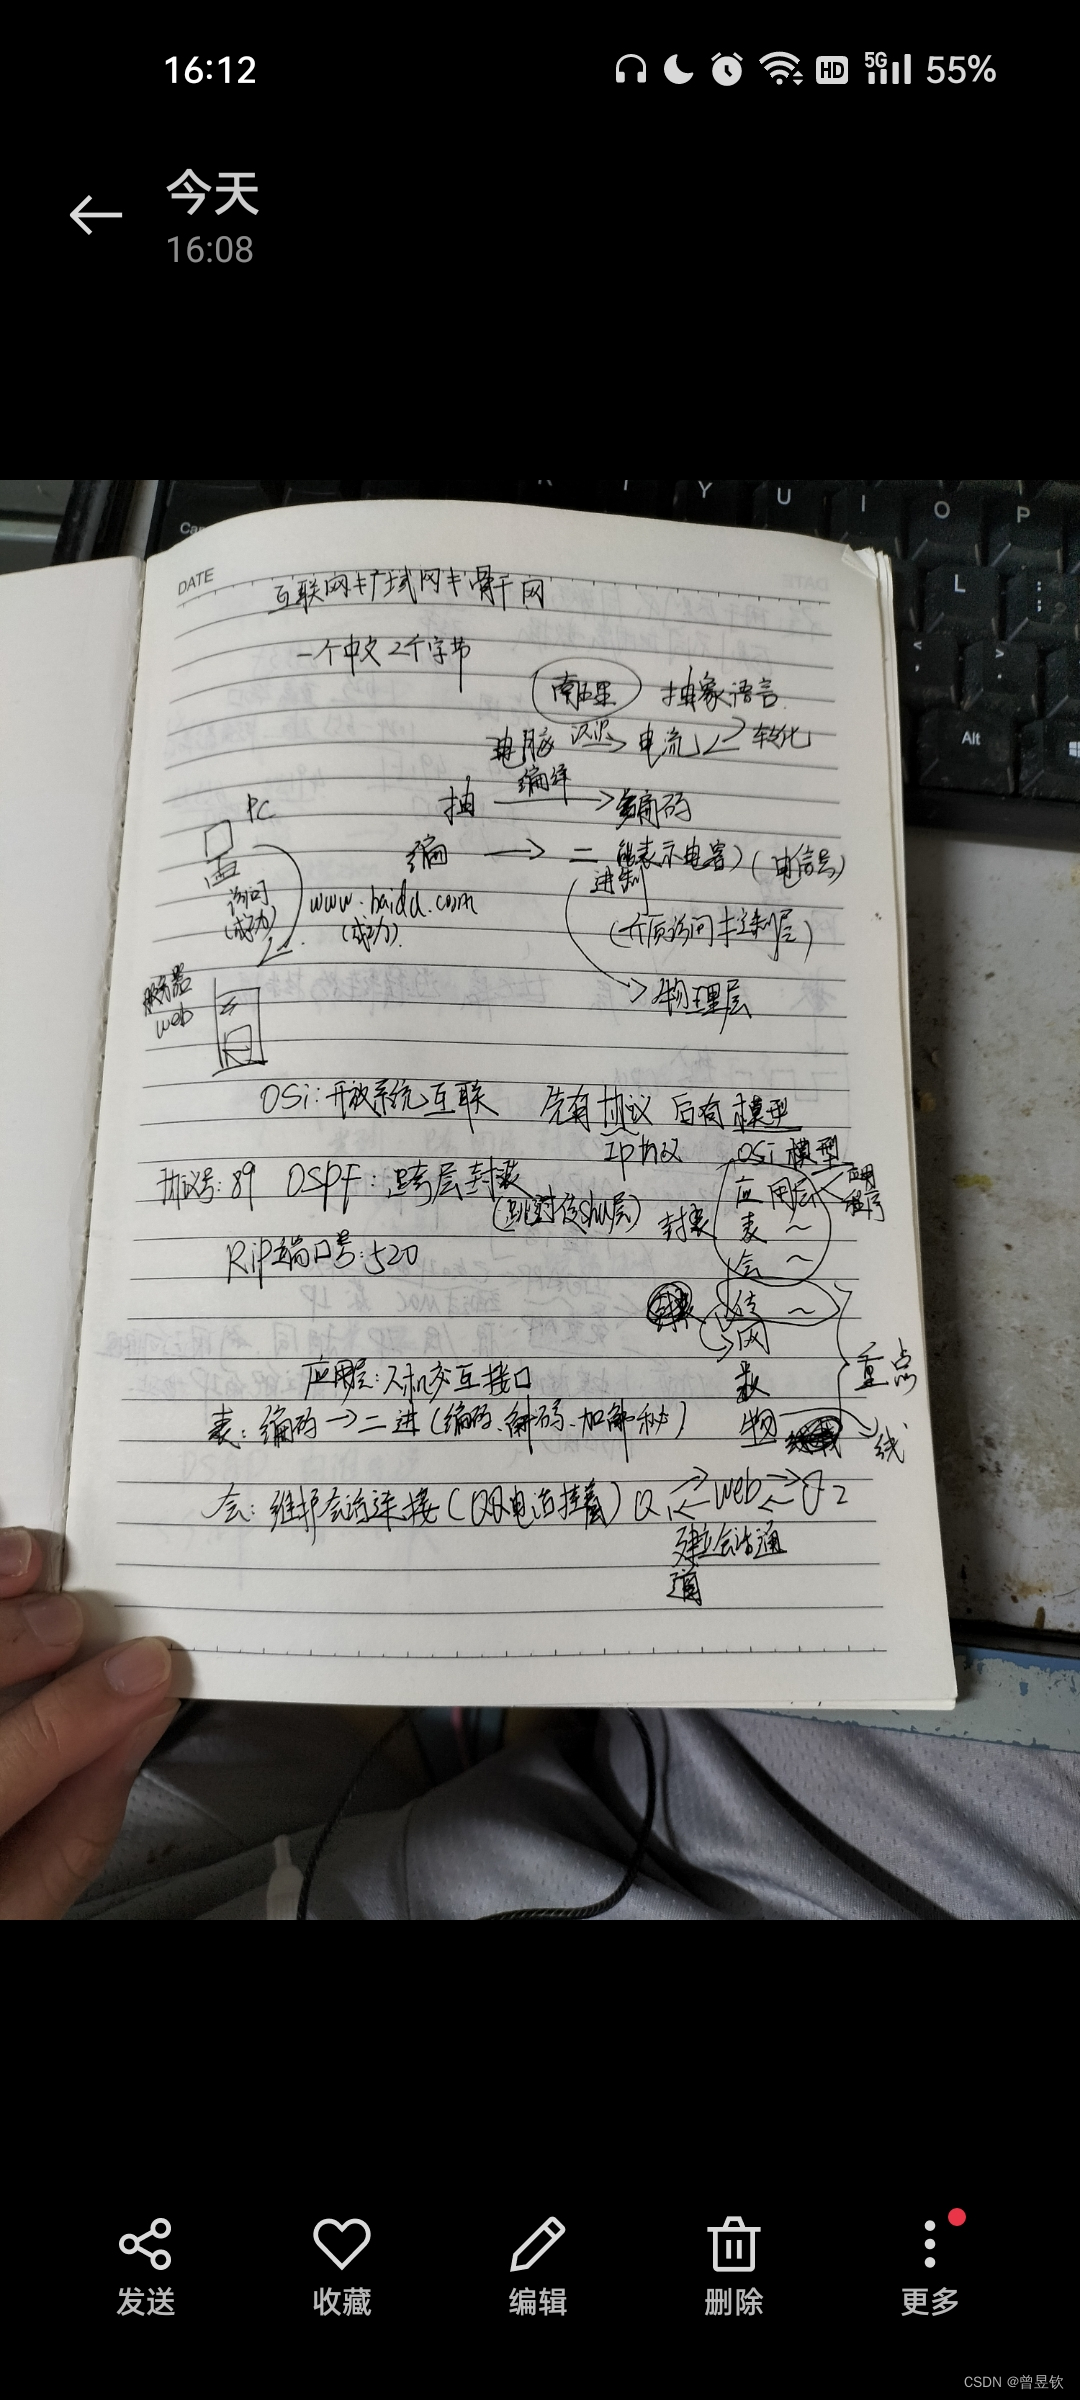 16:12
HD
5G
55%
今天
16:08
Y U I O P
L
Alt
DATE
互联网≠广域网≠骨干网
一个中文2个字节
抽象语言
电脑 识别 电流 转化
抽 编译 编码
编 二进制 能表示电容)(电信号)
PC
访问
(成功)
www.baidu.com
(成功).
(介质访问控制层)
物理层
服务器
web
OSi:开放系统互联 先有协议 后有模型
IP协议 OSi模型
协议号:89 OSPF:跨层封装
(跳过传shu层)
封装
应用层 应用程序
表 ~
会 ~
RiP端口号:520
传 ~
网
数
物 线
重点
应用层:人机交互接口
表:编码→二进(编码、解码、加解秘)
会:维护会话连接(QQ电话挂着) Q web Q2
建立会话通
道
发送
收藏
编辑
删除
更多
CSDN @曾昱钦